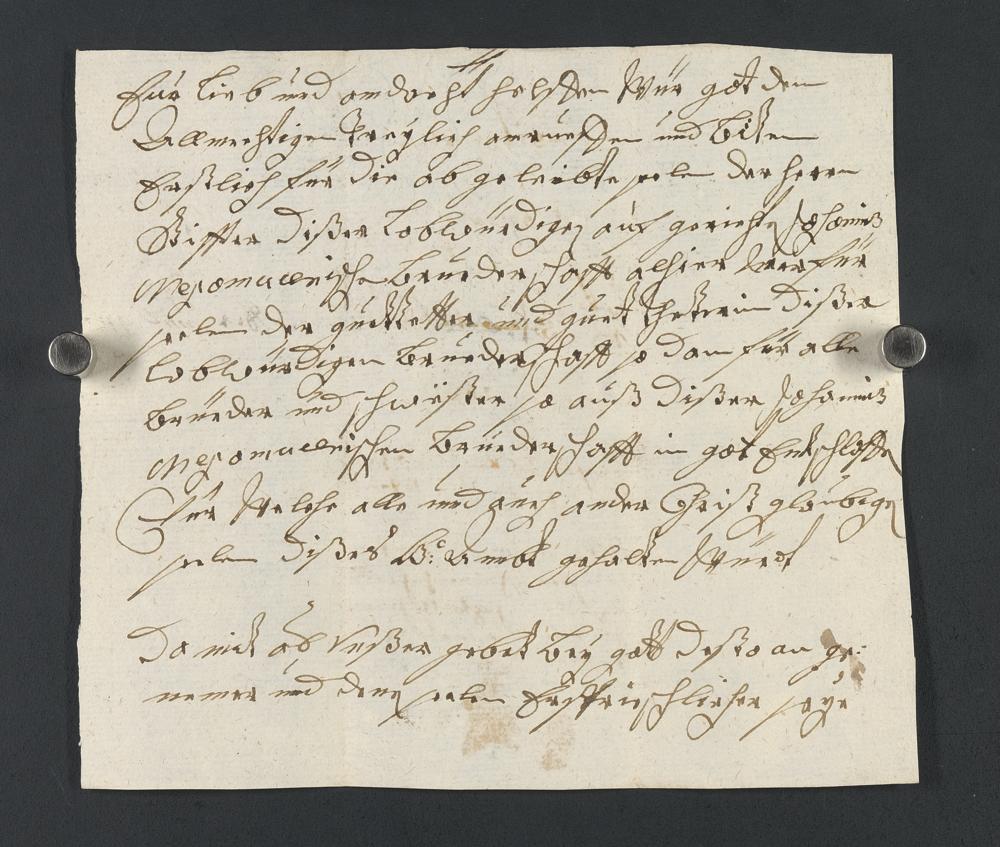 Eür Lieb und andacht helffen Wür got dem
Allmechtigen Treÿlich anrueffen und biten
Erstlich für die ab geleibte selen der herrn
Stiffter dißer Lobwürdigen auf gerichten Johannis
Nepomucenischen Bruederschafft alhier für
seelen der guettetter und guet thetterin dißer
lobwürdigen Bruederschafft so dan für alle
brüeder und schwester so auß dißer Johannis
Nepomucenischen Bruederschafft in got Entschloffen
für Welche alle und auch ander Christ glaubigen
selen dißes Ambt gehalten Würdt
Da mit ab Unßer gebett beÿ gott desto an ge:
nemer und denen selen Erssprießlicher seÿe